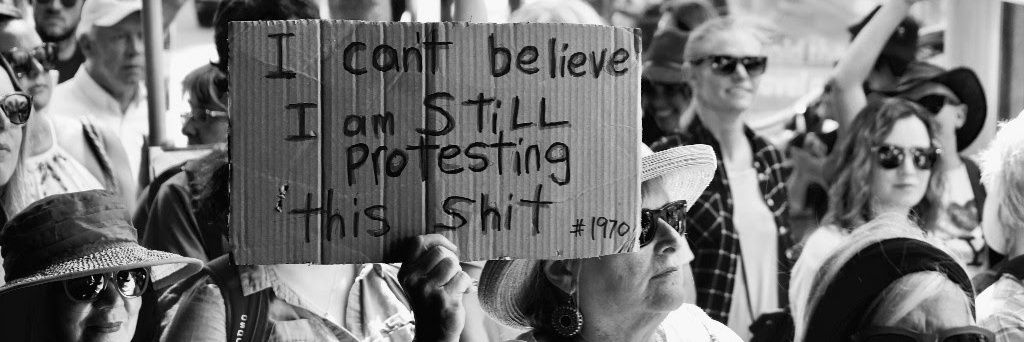 I can't believe
I am STiLL
protesting
this shit #1970